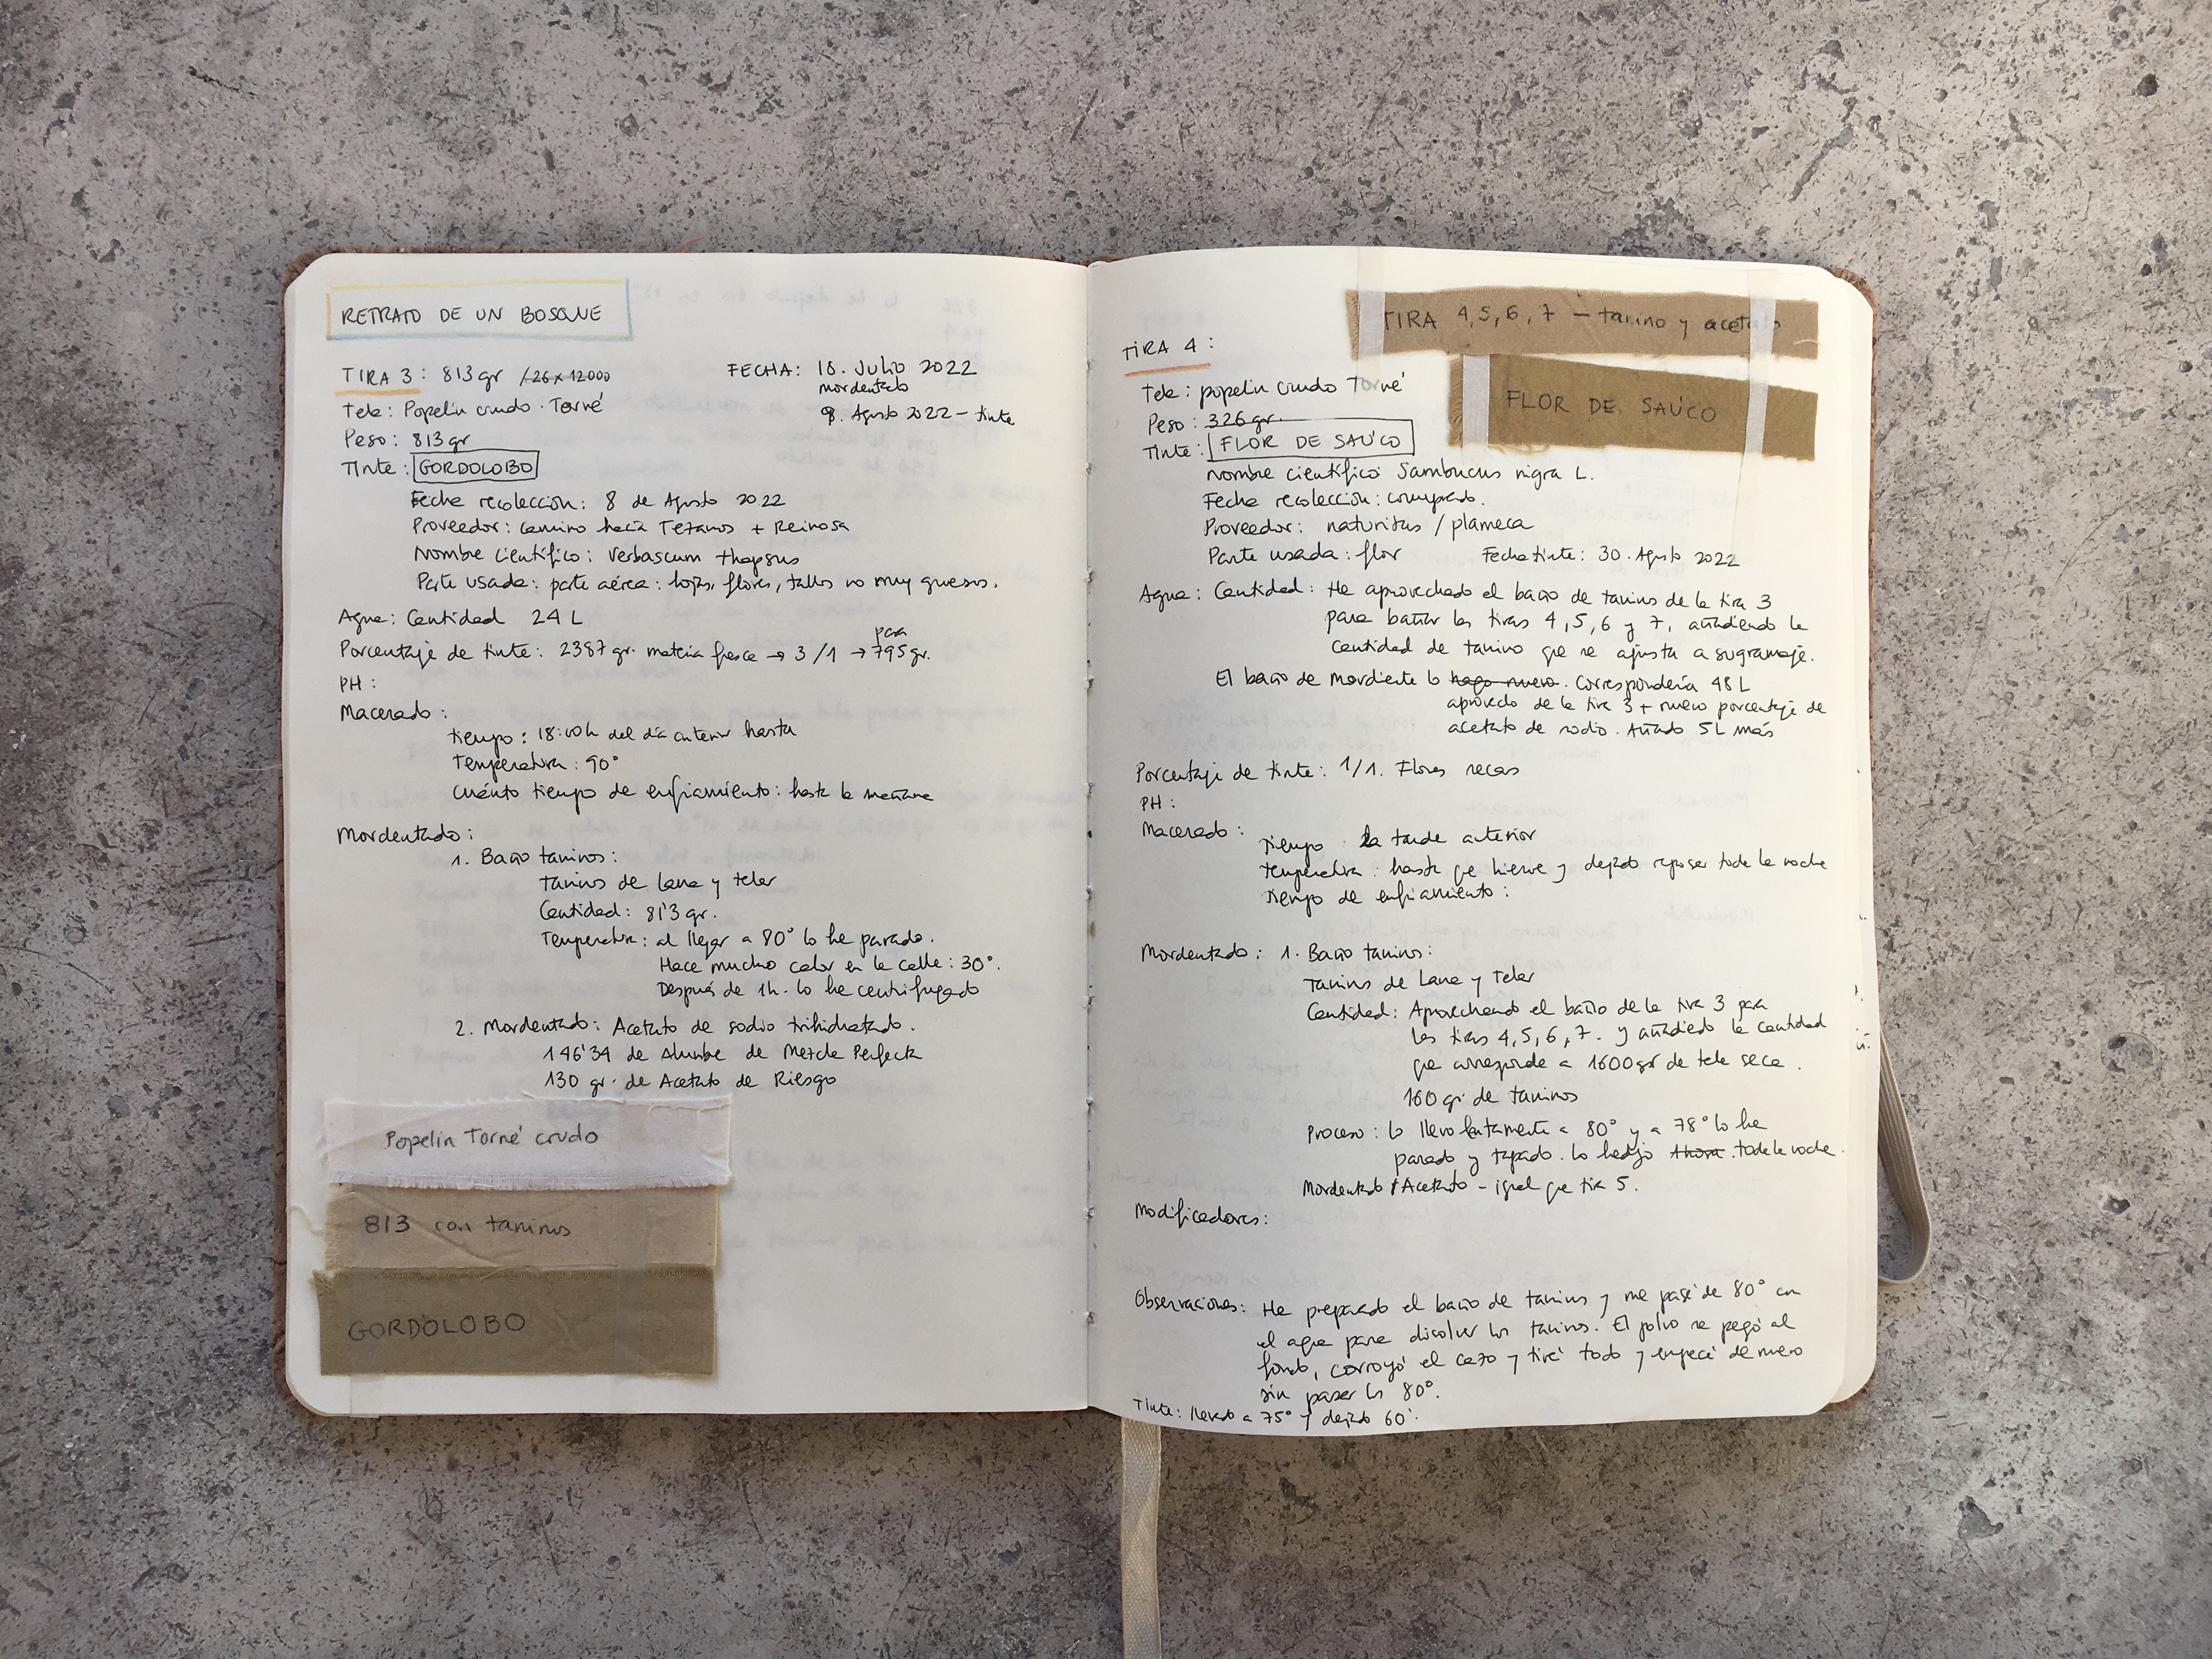 RETRATO DE UN BOSQUE
TIRA 3: 813 gr /26 x 12000
FECHA: 18. Julio 2022
mordentado
9. Agosto 2022 - tinte
Tela: Popelín crudo. Torné
Peso: 813 gr
Tinte: GORDOLOBO
Fecha recolección: 8 de Agosto 2022
Proveedor: camino hacia Tezanos + Reinosa
Nombre científico: Verbascum thapsus
Parte usada: parte aérea: hojas, flores, tallos no muy gruesos.
Agua: Cantidad 24 L
para
Porcentaje de tinte: 2387 gr. materia fresca → 3/1 → 795 gr.
PH:
Macerado:
tiempo: 18:00h del día anterior hasta
Temperatura: 90°
Cuánto tiempo de enfriamiento: hasta la mañana
Mordentado:
1. Baño taninos:
Taninos de Lana y telar
Cantidad: 81'3 gr.
Temperatura: al llegar a 80° lo he parado.
Hace mucho calor en la calle: 30°.
Después de 1h. lo he centrifugado
2. Mordentado: Acetato de sodio trihidratado.
146'34 de Alumbe de Mezcla Perfecta
130 gr. de Acetato de Riesgo
Popelin Torné crudo
813 con taninos
GORDOLOBO
TIRA 4, 5, 6, 7 - tanino y acetato
TIRA 4:
FLOR DE SAÚCO
Tela: popelín crudo Torné
Peso: 326 gr.
Tinte: FLOR DE SAÚCO
Nombre científico Sambucus nigra L.
Fecha recolección: comprado.
Proveedor: naturitas / plameca
Parte usada: flor Fecha tinte: 30. Agosto 2022
Agua: Cantidad: He aprovechado el baño de taninos de la tira 3
para bañar las tiras 4, 5, 6 y 7, añadiendo la
cantidad de tanino que se ajusta a su gramaje.
El baño de mordiente lo hago nuevo. Correspondería 48 L
aprovecho de la tira 3 + nuevo porcentaje de
acetato de sodio. Añado 5 L más
Porcentaje de tinte: 1/1. Flores secas
PH:
Macerado:
Tiempo La tarde anterior
Temperatura: hasta que hierve y dejado reposar toda la noche
Tiempo de enfriamiento:
Mordentado: 1. Baño taninos:
Taninos de Lana y Telar
Cantidad: Aprovechando el baño de la tira 3 para
las tiras 4, 5, 6, 7. y añadiendo la cantidad
que corresponde a 1600 gr de tela seca.
160 gr de taninos
Proceso: Lo llevo lentamente a 80° y a 78° lo he
parado y tapado. Lo he dejo 1 hora. toda la noche.
Mordentado / Acetato - igual que tira 5.
Modificadores:
Observaciones: He preparado el baño de taninos y me pasé de 80° con
el agua para disolver los taninos. El polvo se pegó al
fondo, corroyó el cazo y tiré todo y empecé de nuevo
sin pasar los 80°.
Tinte: llevado a 75° y dejado 60'.